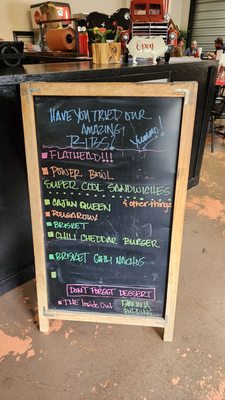 Open
HAVE YOU TRIED OUR
AMAZING!
RIBS? Yummy!
FLATHEAD!!!
POWER BOWL
SUPER COOL SANDWICHES
& other things
CAJUN QUEEN
POUGAROU!
BRISKET
CHILI CHEDDAR BURGER
BRISKET CHILI NACHOS
DON'T FORGET DESSERT
THE Inside Out
BANANA
PUDDING